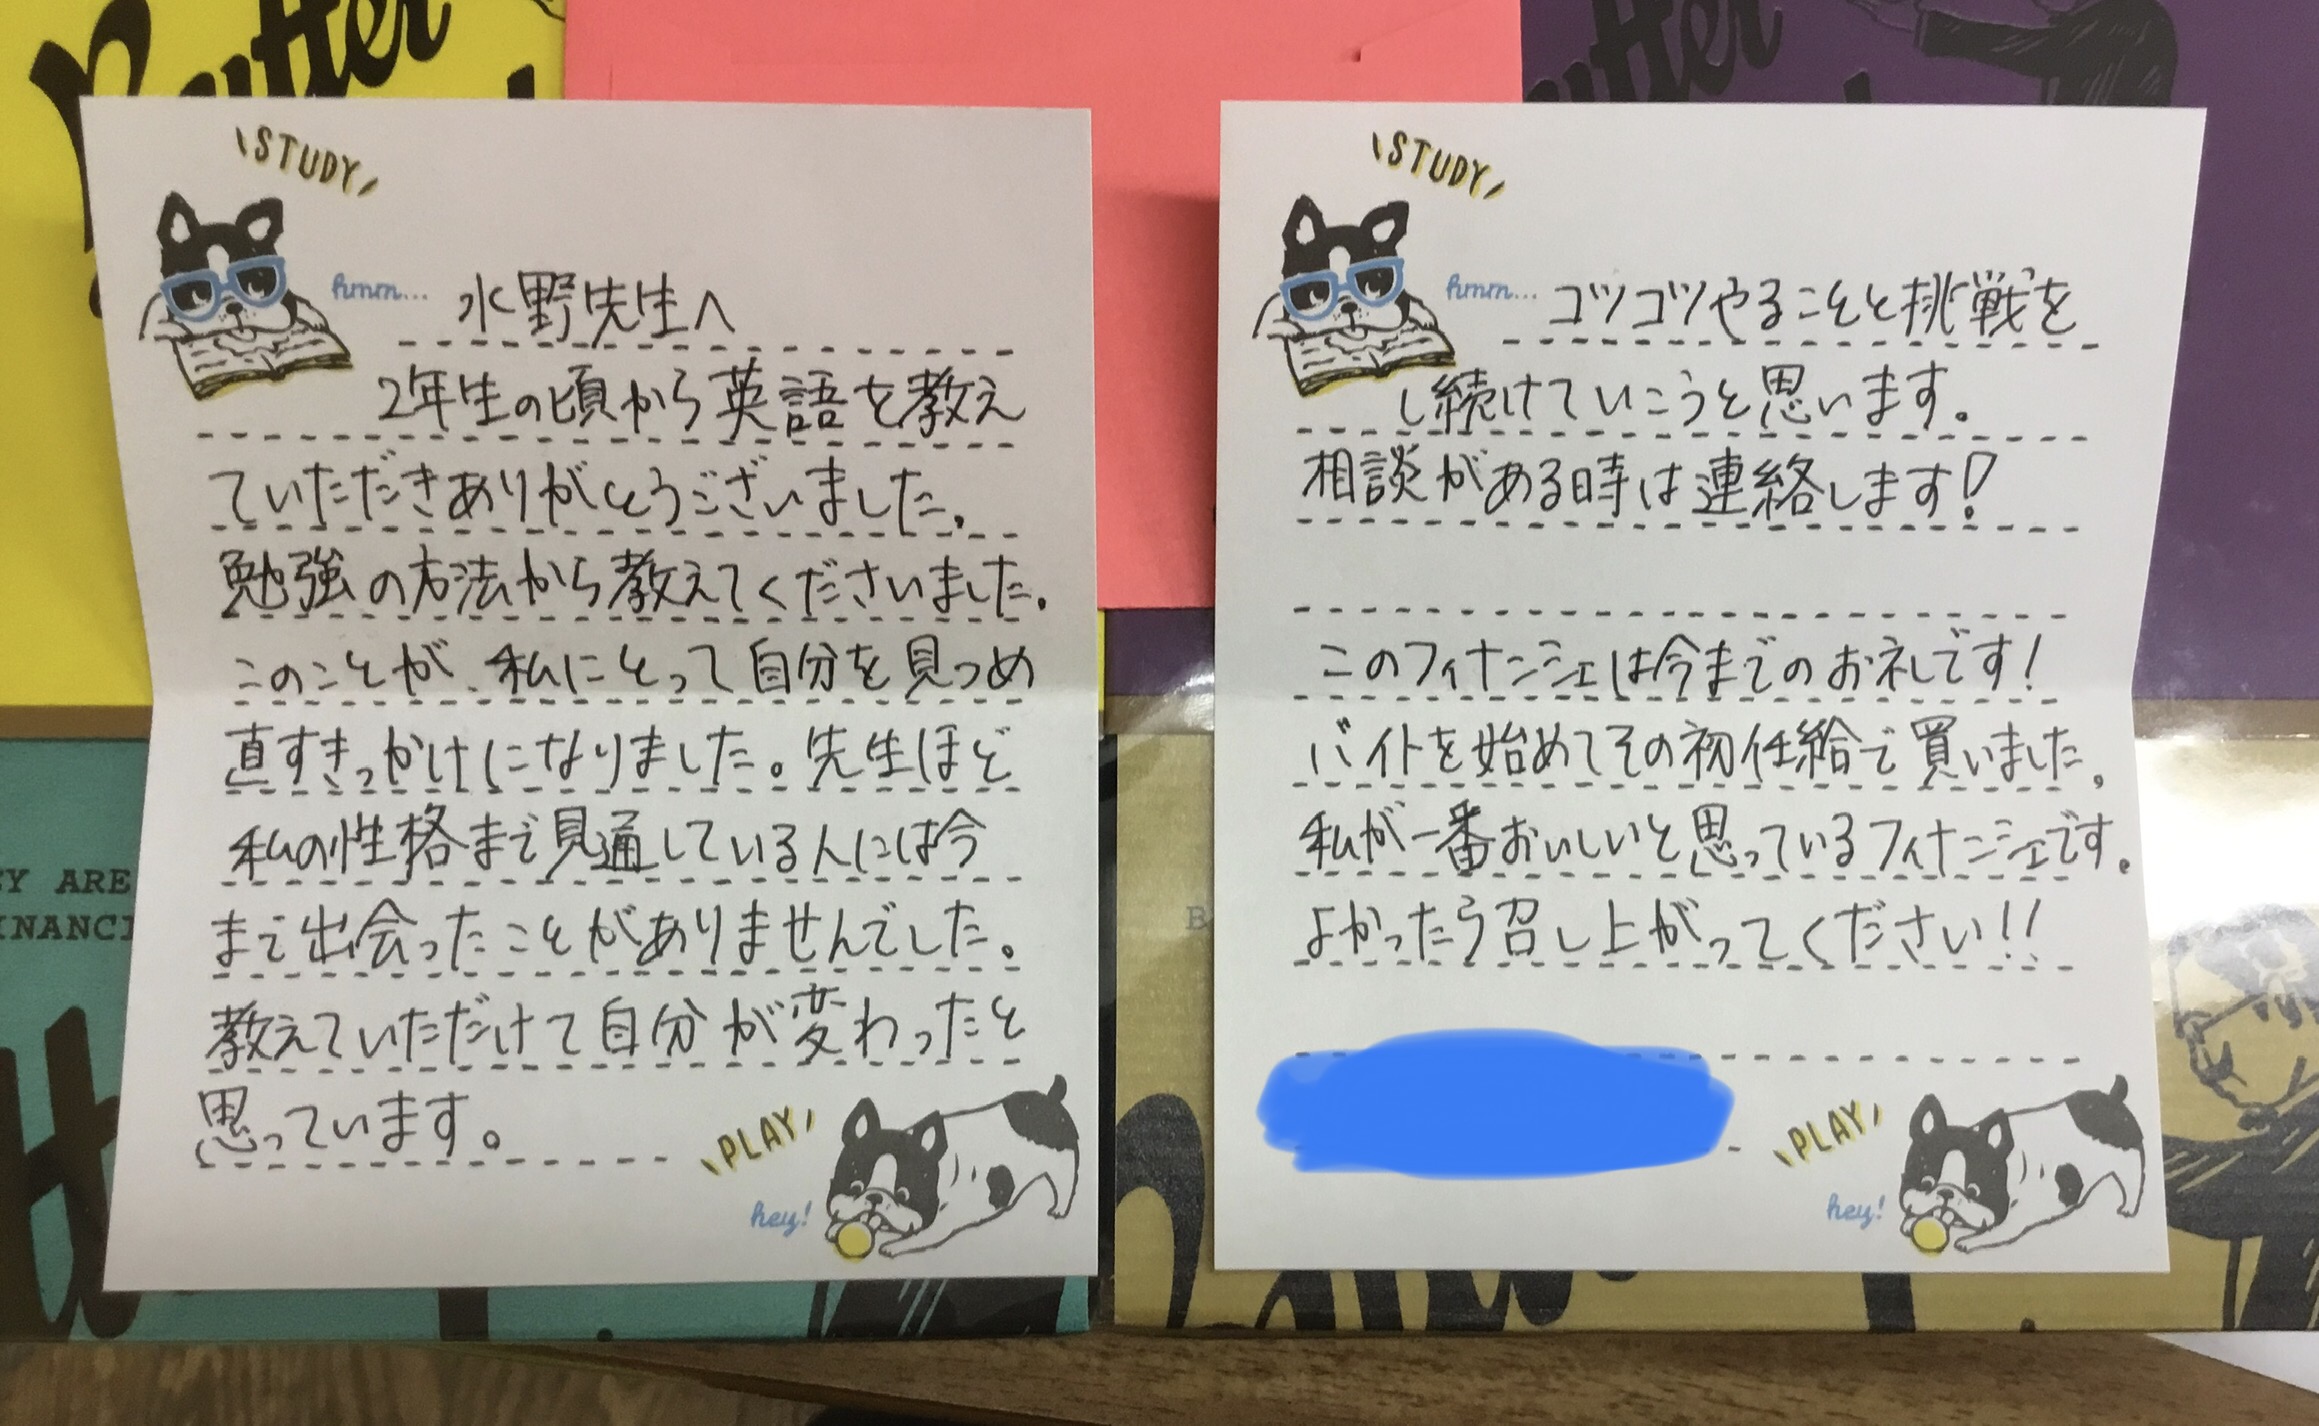 Butter
utter
STUDY
hmm...
水野先生へ
2年生の頃から英語を教え
ていただきありがとうございました。
勉強の方法から教えてくださいました。
このことが、私にとって自分を見つめ
直すきっかけになりました。先生ほど
私の性格まで見通している人には今
まで出会ったことがありませんでした。
教えていただけて自分が変わったと
思っています。
PLAY
hey!
STUDY
hmm...
コツコツやることと挑戦を
し続けていこうと思います。
相談がある時は連絡します!
このフィナンシェは今までのお礼です!
バイトを始めてその初任給で買いました。
私が一番おいしいと思っているフィナンシェです。
よかったら召し上がってください!!
PLAY
hey!
EY ARE
INANCI
B